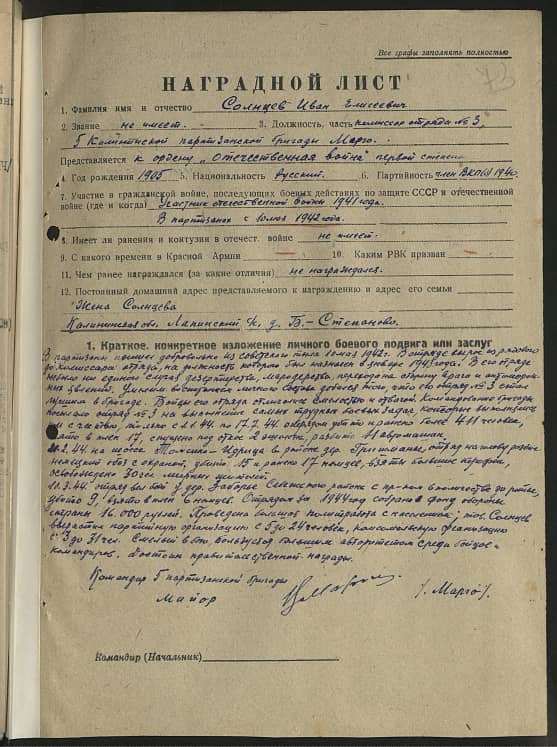 Все графы заполнять полностью
НАГРАДНОЙ ЛИСТ
1. Фамилия имя и отчество Солнцев Иван Елисеевич
2. Звание не имеет. 3. Должность, часть комиссар отряда № 3,
5 Калининской партизанской бригады Марго.
Представляется к ордену „Отечественная война" первой степени
4. Год рождения 1905 5. Национальность Русский. 6. Партийность член ВКП(б) 1940.
7. Участие в гражданской войне, последующих боевых действиях по защите СССР и отечественной
войне (где и когда) Участник отечественной войны 1941 года.
В партизанах с 10 мая 1942 года.
8. Имеет ли ранения и контузии в отечест. войне не имеет.
9. С какого времени в Красной Армии 10. Каким РВК призван
11. Чем ранее награждался (за какие отличия) не награждался.
12. Постоянный домашний адрес представляемого к награждению и адрес его семьи
Жена Солнцева
Калининская обл. д. Б-Степаново.
1. Краткое, конкретное изложение личного боевого подвига или заслуг
В партизаны пошел добровольно из советского тыла 10 мая 1942г. В отряде вырос из рядового
до комиссара отряда, на должность которого был назначен в январе года. В его отряде
не было ни единого случая дезертирства, мародерства, перехода на сторону врага и
явлений. Целом воспитанием личного состава добился того, что его отряд № 3 стал
лучшим в бригаде. Бойцы его отряда отличались смелостью и отвагой. Командование бригады
посылало отряд № 3 на выполнение самых трудных боевых задач, которые выполнялись
им с честью, только с 2.1.44 по 17.7.44 отрядом убито и ранено более 411 человек,
взято в плен 17, спущено под откос 2 эшелона, разбито 11 автомашин.
на шоссе Идрица в районе дер. отряд на голову разбил
немецкий обоз с охраной, убито 15 и ранено 17 немцев, взяты большие трофеи
освобождено 3000 мирных жителей.
отряд вел бой у дер. Заборье района с пр-ком в количестве до роты,
убито 9, взято в плен 6 немцев. Отрядом за 1944 год собрано в фонд обороны
страны 16.000 рублей. Проведена большая политработа с населением; тов. Солнцев
вырастил партийную организацию с 5 до 24 человек, комсомольскую организацию
с 3 до 31 чел. Смелый в бою, пользуется большим авторитетом среди бойцов и
командиров. Достоин правительственной награды.
Командир 5 партизанской бригады
Майор /Марго/.
Командир (Начальник)